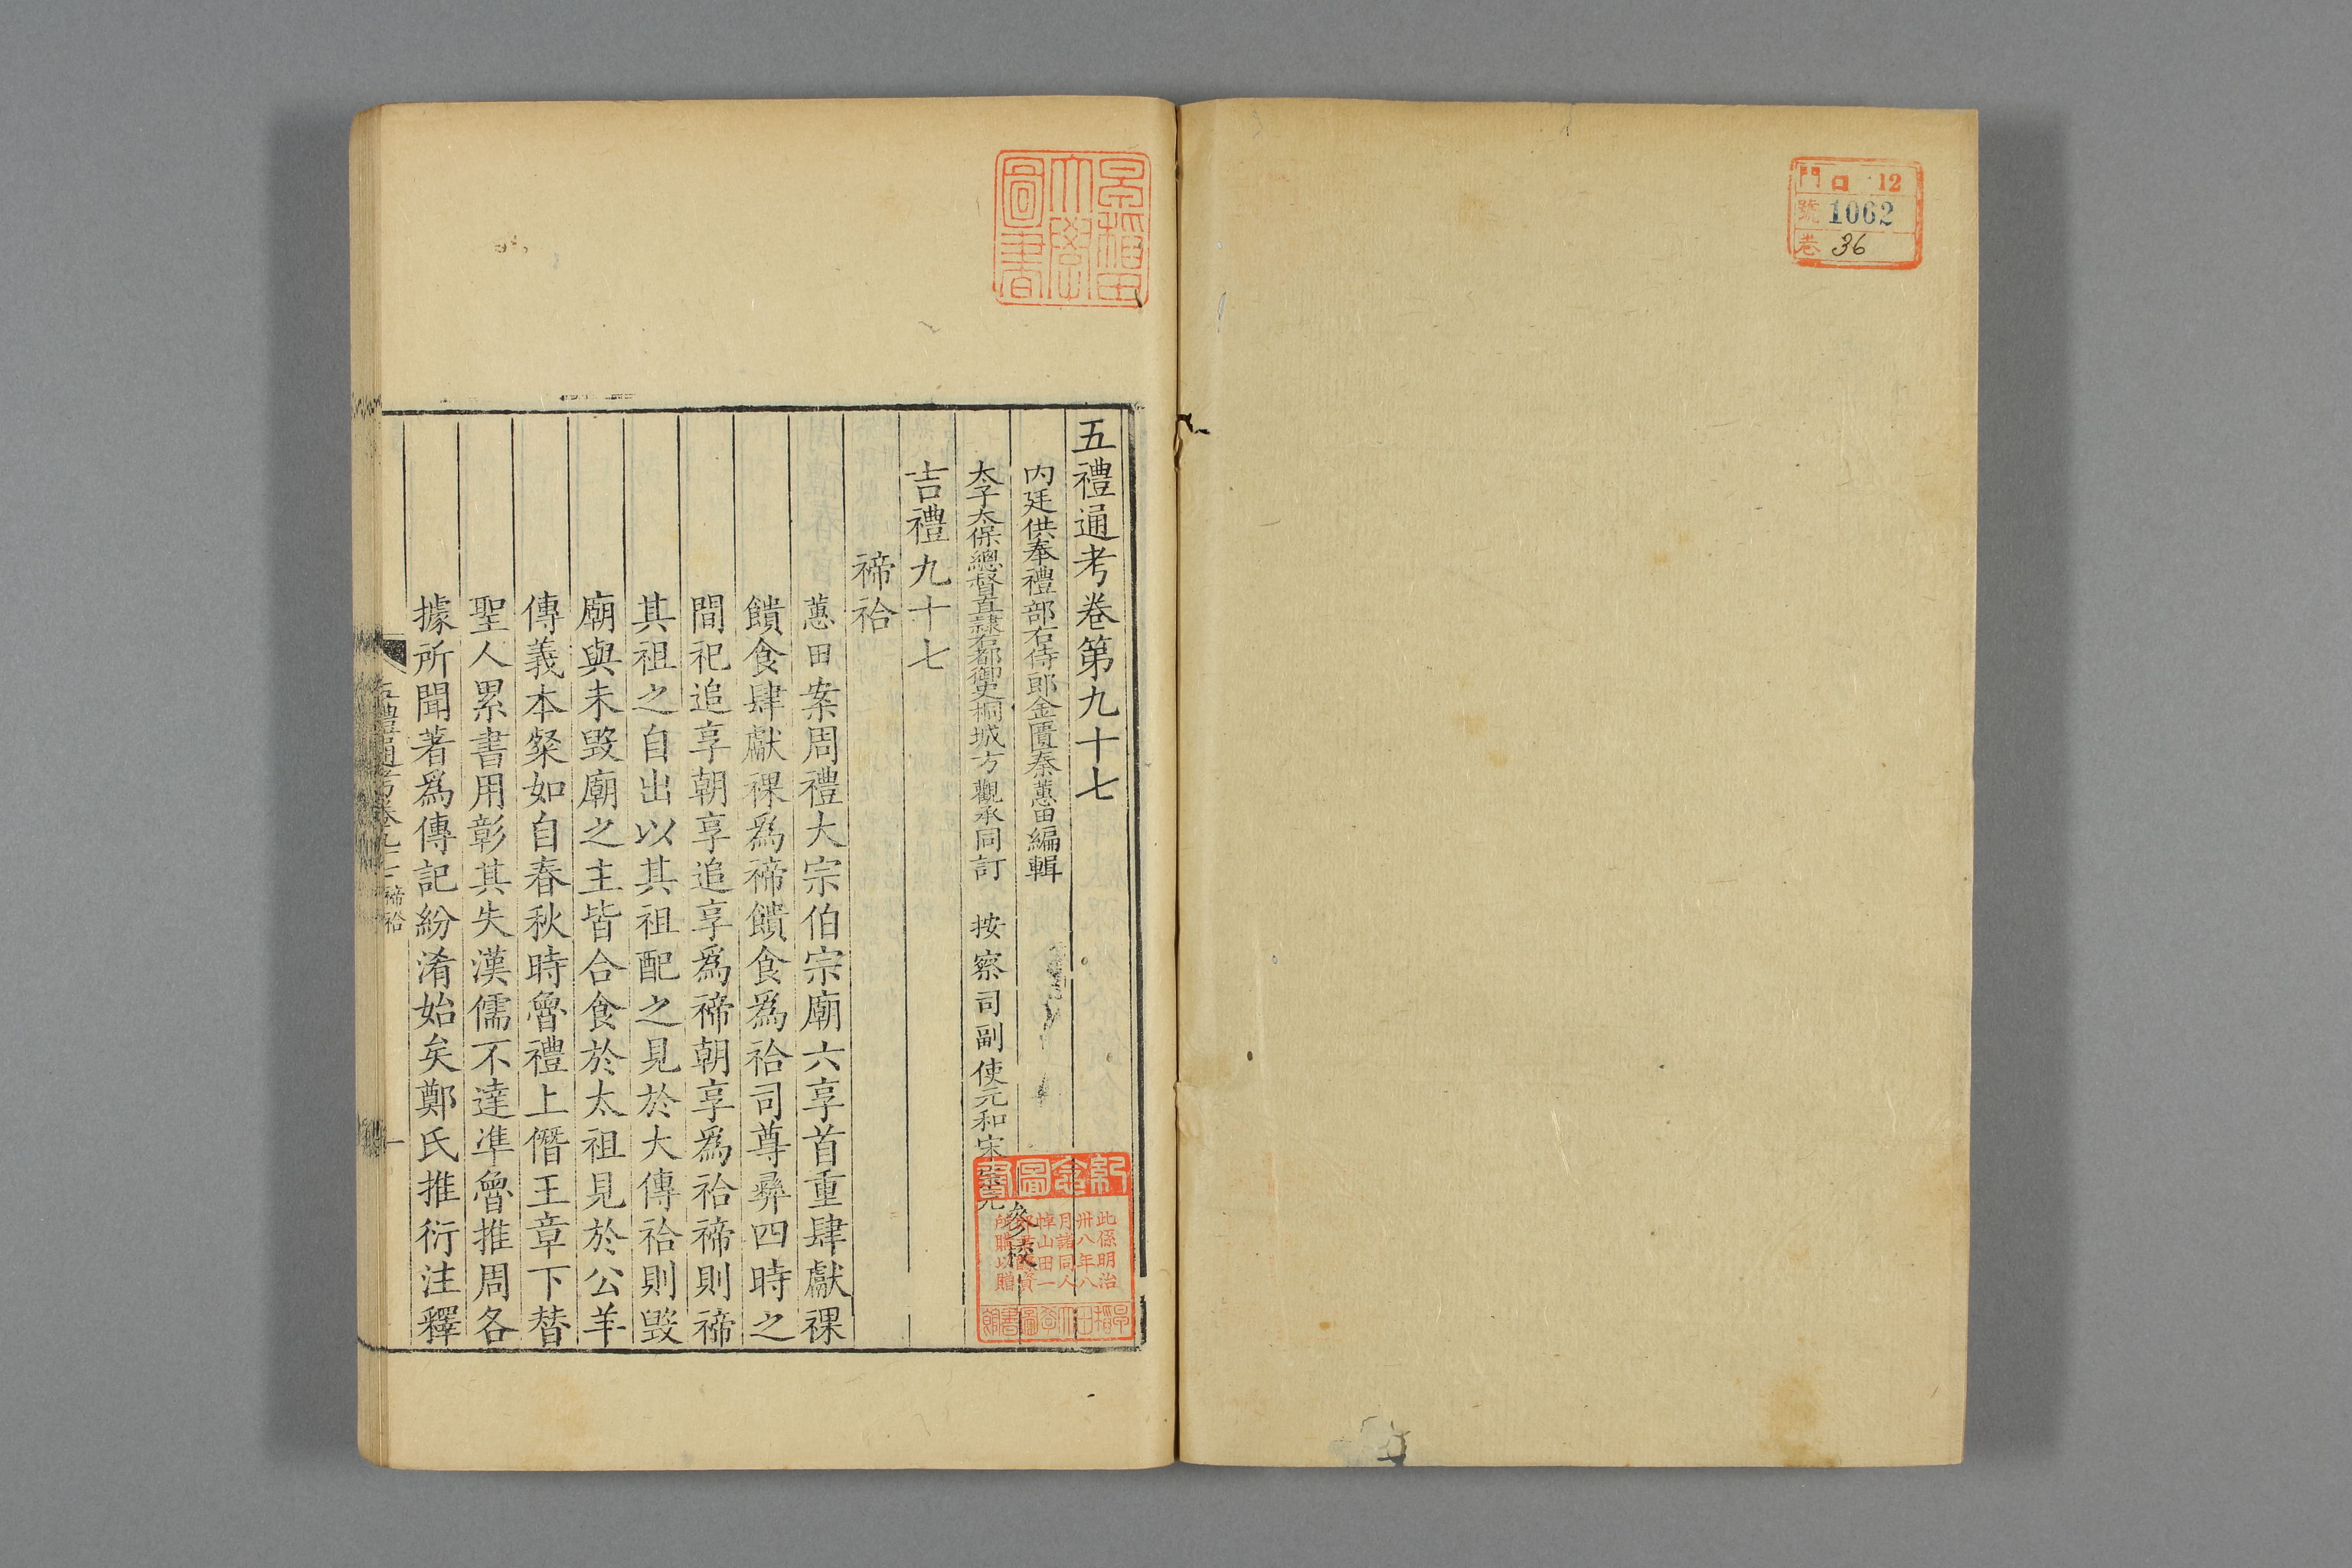 門 ロ 12
號 1062
卷 36
早稲田
大學
圖書
五禮通考卷第九十七
内廷供奉禮部右侍郎金匱秦蕙田編輯
太子太保總督直隸右都御史桐城方觀承同訂 按察司副使元和宋宗元
參校
吉禮九十七
禘祫
蕙田案周禮大宗伯宗廟六享首重肆獻祼
饋食肆獻祼爲禘饋食爲祫司尊彝四時之
間祀追享朝享追享爲禘朝享爲祫禘則禘
其祖之自出以其祖配之見於大傳祫則毀
廟與未毀廟之主皆合食於太祖見於公羊
傳義本粲如自春秋時魯禮上僭王章下替
聖人累書用彰其失漢儒不達準魯推周各
據所聞著爲傳記紛淆始矣鄭氏推衍注釋
五禮通考卷九十七 禘祫 一
紀念圖書
此係明治
卅八年八
月諸同人
悼山田一
郎君醵資
所購以贈
早稲田大學圖書館